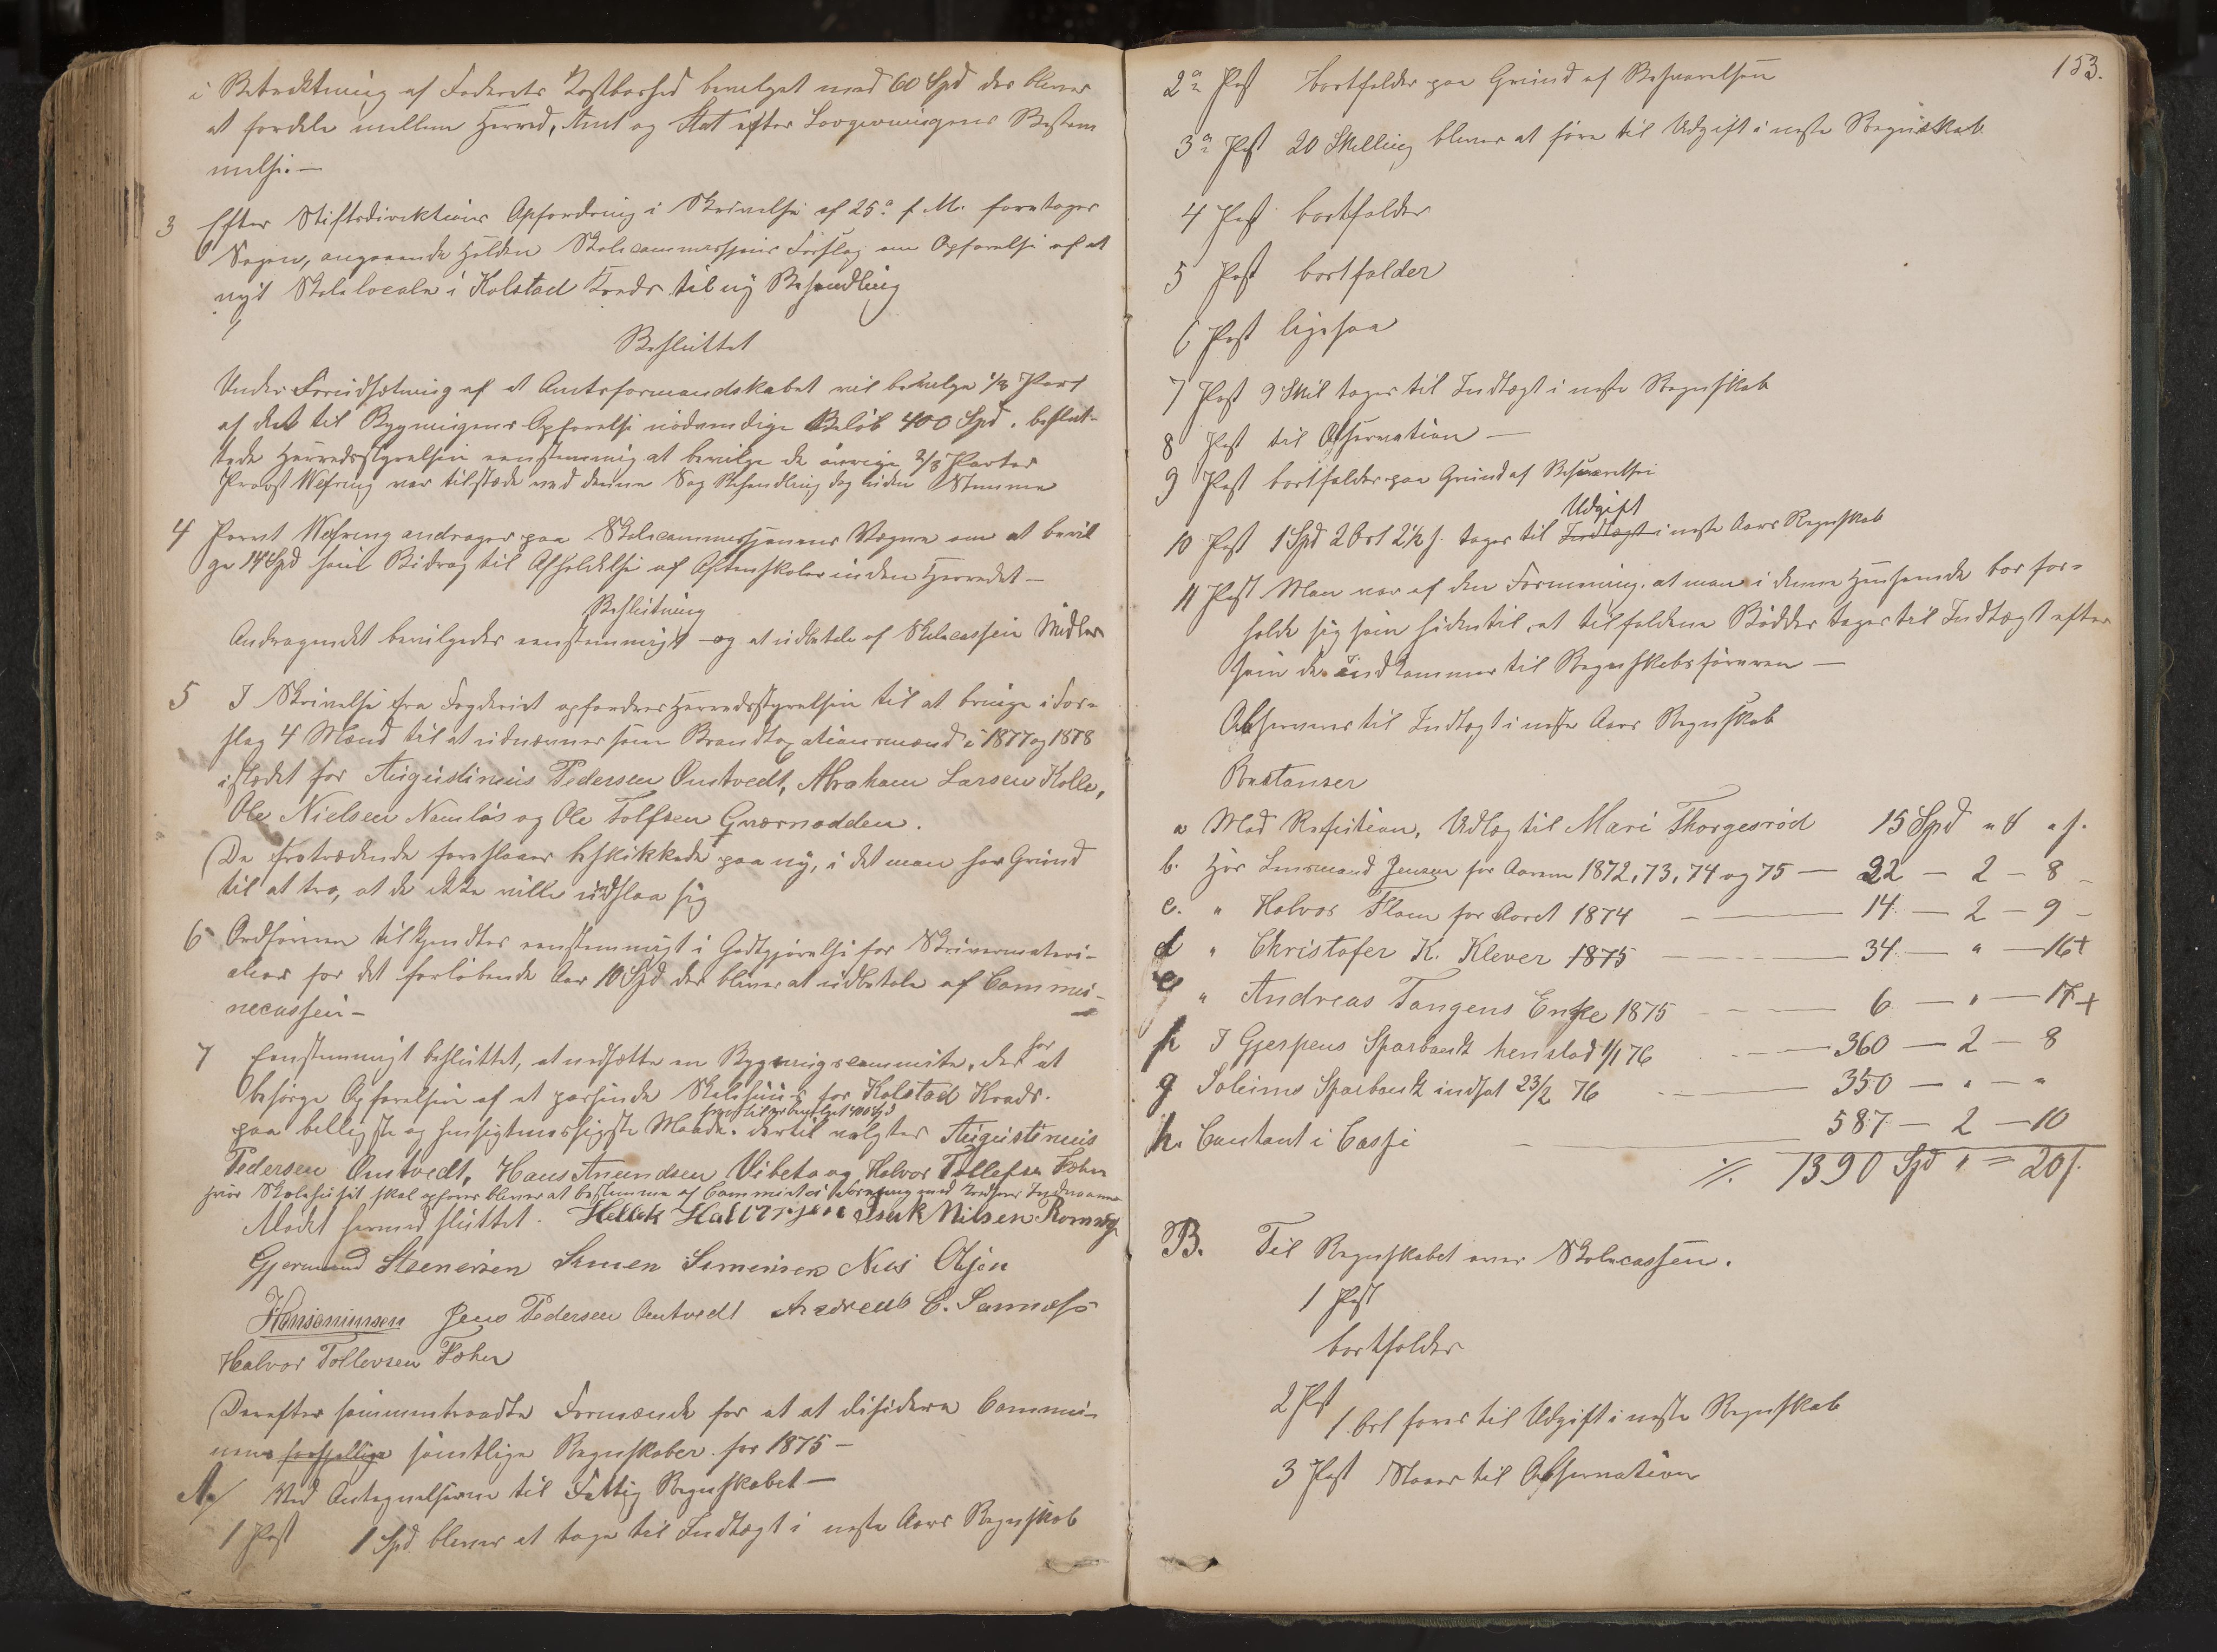 i Betraktning af Foderets Kostbarhed bevilget med 60 Spd der bliver
at fordele mellem Herred, Amt og Stat efter Lovgivningens Bestem
melse. —
3 Efter Stiftsdirektionens Opfordring i Skrivelse af 25de f. M. foretoges
Sagen, angaaende Holden Skolecommissions Forslag om Opførelse af et
nyt Skolelocale i Kolstad Kreds til ny Behandling
Besluttet
Under Forudsætning af at Amtsformandskabet vil bevilge 1/3 Part
af det til Bygningens Opførelse nødvendige Beløb 400 Spd. beslut-
tede Herredsstyrelsen eenstemmig at bevilge de øvrige 2/3 Parter
Provst Wefring var tilstæde ved denne Sag Behandling dog uden Stemme
4 Provst Wefring andrager paa Skolecommissionens Vegne om at bevil
ge 14 Spd som Bidrag til Afholdelse af Aftenskoler inden Herredet —
Beslutning
Andragendet bevilgedes eenstemmigt — og at udbetale af Skolecassens Midler
5 I Skrivelse fra Fogderiet opfordres Herredsstyrelsen til at bringe i For-
slag 4 Mænd til at udnævnes som Brandtaxationsmænd i 1877 og 1878
istedet for Augustinus Pedersen Omtvedt, Abraham Larsen Kolle,
Ole Nielsen Namløs og Ole Tolfsen Gnærnodden.
De fratrædende foreslaaes beskikkede paa ny, i det man har Grund
til at tro, at de ikke ville undslaa sig
6 Ordføreren tilkjendtes eenstemmigt i Godtgjørelse for Skrivermateri-
aler for det forløbende Aar 10 Spd der bliver at udbetale af Commu-
necassen —
7 Eenstemmigt besluttet, at nedsætte en Bygningscommite, der har at
besørge Opførelsen af et passende Skolehuus for Kolstad Kreds.
paa billigste og hensigtmessigste Maade. dertil valgtes Augustinus
Pedersen Omtvedt, Hans Amundsen Vibeto og Halvor Tollefsen Fæhn
hvor Skolehuset skal opføres bliver at bestemme af Commiteen i Forening med Kredsens Indvaanere
Mødet hermed sluttet. Hellek Halvorsen Isak Nilsen Romnæs
Gjermund Steenersen Simen Simensen Nils Olsen
Jens Pedersen Omtvedt Andreas C. Sannæss
Halvor Tollevsen Fæhn
Derefter sammentraadte Formænde for at at disidere Commu-
nens forskjellige samtlige Regnskaber for 1875 —
A./ Ved Antegnelserne til Fattig Regnskabet —
1 Post 1 Spd bliver at tage til Indtægt i neste Aars Regnskab
153.
2en Post bortfalder paa Grund af Besvarelsen
3die Post 20 Skilling bliver at føre til Udgift i neste Regnskab
4 Post bortfalder
5 Post bortfalder
6 Post ligesaa
7 Post 9 Skil tages til Indtægt i neste Regnskab
8 Post til Observation —
9 Post bortfalder paa Grund af Besvarelse
Udgift
10 Post 1 Spd 2 Ort 2 1/2 s. tages til Indtægt i neste Aars Regnskab
11 Post Man var af den Formening, at man i denne Henseende bør for-
holde sig som hidentil, at tilfaldne Bødder tages til Indtægt efter
som de indkommer til Regnskabsføreren —
Observeres til Indtægt i neste Aars Regnskab
Restanser
a Mod Refusion, Udlæg til Mari Thorgesrød 15 Spd " # " s.
b. Hos Lensmand Jensen for Aarene 1872, 73, 74 og 75 — 22 — 2 — 8 —
c. " Halvor Flom for Aaret 1874 — 14. — 2 — 9 —
d " Christofer K. Klever 1875 — 34. — " — 16 +
e " Andreas Tangens Enke 1875 — 6 — " — 17 +
f I Gjerpens Sparbank henstod 1/1 76 — 360 — 2 — 8
g Solums Sparbank indsat 23/2 76 — 350 — " — "
h. Contant i Casse — 587 — 2 — 10
./. 1390 Spd " = 20 s.
B. Til Regnskabet over Skolecassen.
1 Post
bortfalder
2 Post
1 Ort føres til Udgift i neste Regnskab
3 Post Staaer til Observation